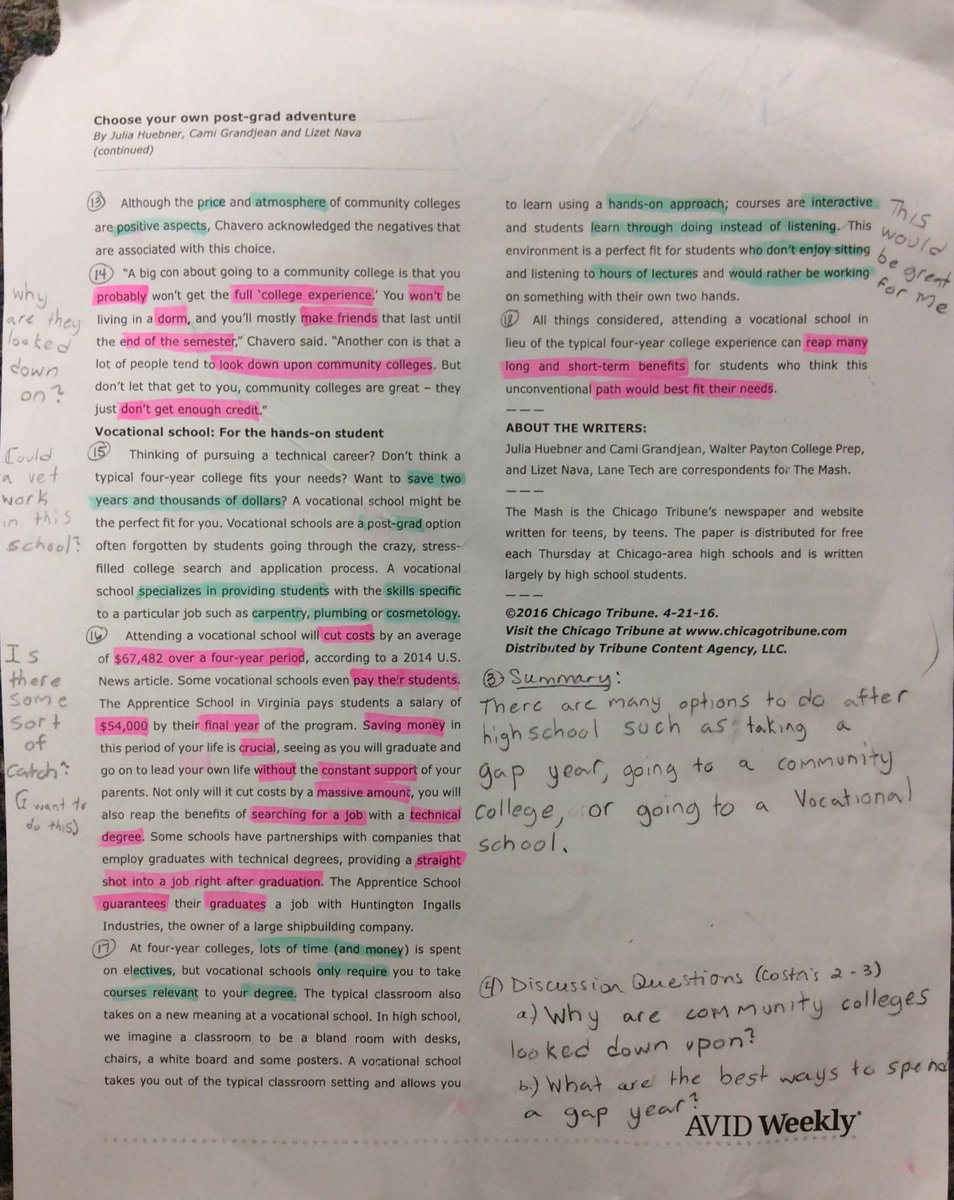 Choose your own post-grad adventure
By Julia Huebner, Cami Grandjean and Lizet Nava
(continued)
13 Although the price and atmosphere of community colleges
are positive aspects, Chavero acknowledged the negatives that
are associated with this choice.
14 “A big con about going to a community college is that you
probably won’t get the full ‘college experience.’ You won’t be
living in a dorm, and you’ll mostly make friends that last until
the end of the semester,” Chavero said. “Another con is that a
lot of people tend to look down upon community colleges. But
don’t let that get to you, community colleges are great – they
just don’t get enough credit.”
Why
are they
looked
down
on?
Vocational school: For the hands-on student
15 Thinking of pursuing a technical career? Don’t think a
typical four-year college fits your needs? Want to save two
years and thousands of dollars? A vocational school might be
the perfect fit for you. Vocational schools are a post-grad option
often forgotten by students going through the crazy, stress-
filled college search and application process. A vocational
school specializes in providing students with the skills specific
to a particular job such as carpentry, plumbing or cosmetology.
Could
a vet
work
in this
school?
16 Attending a vocational school will cut costs by an average
of $67,482 over a four-year period, according to a 2014 U.S.
News article. Some vocational schools even pay their students.
The Apprentice School in Virginia pays students a salary of
$54,000 by their final year of the program. Saving money in
this period of your life is crucial, seeing as you will graduate and
go on to lead your own life without the constant support of your
parents. Not only will it cut costs by a massive amount, you will
also reap the benefits of searching for a job with a technical
degree. Some schools have partnerships with companies that
employ graduates with technical degrees, providing a straight
shot into a job right after graduation. The Apprentice School
guarantees their graduates a job with Huntington Ingalls
Industries, the owner of a large shipbuilding company.
Is
there
some
sort
of
catch?
(I want to
do this)
17 At four-year colleges, lots of time (and money) is spent
on electives, but vocational schools only require you to take
courses relevant to your degree. The typical classroom also
takes on a new meaning at a vocational school. In high school,
we imagine a classroom to be a bland room with desks,
chairs, a white board and some posters. A vocational school
takes you out of the typical classroom setting and allows you
to learn using a hands-on approach; courses are interactive
and students learn through doing instead of listening. This
environment is a perfect fit for students who don’t enjoy sitting
and listening to hours of lectures and would rather be working
on something with their own two hands.
This
would
be great
for me
18 All things considered, attending a vocational school in
lieu of the typical four-year college experience can reap many
long and short-term benefits for students who think this
unconventional path would best fit their needs.
———
ABOUT THE WRITERS:
Julia Huebner and Cami Grandjean, Walter Payton College Prep,
and Lizet Nava, Lane Tech are correspondents for The Mash.
———
The Mash is the Chicago Tribune’s newspaper and website
written for teens, by teens. The paper is distributed for free
each Thursday at Chicago-area high schools and is written
largely by high school students.
———
©2016 Chicago Tribune. 4-21-16.
Visit the Chicago Tribune at www.chicagotribune.com
Distributed by Tribune Content Agency, LLC.
3 Summary:
There are many options to do after
highschool such as taking a
gap year, going to a community
college, or going to a Vocational
school.
4 Discussion Questions (costa's 2-3)
a) Why are community colleges
looked down upon?
b.) What are the best ways to spend
a gap year?
AVID Weekly